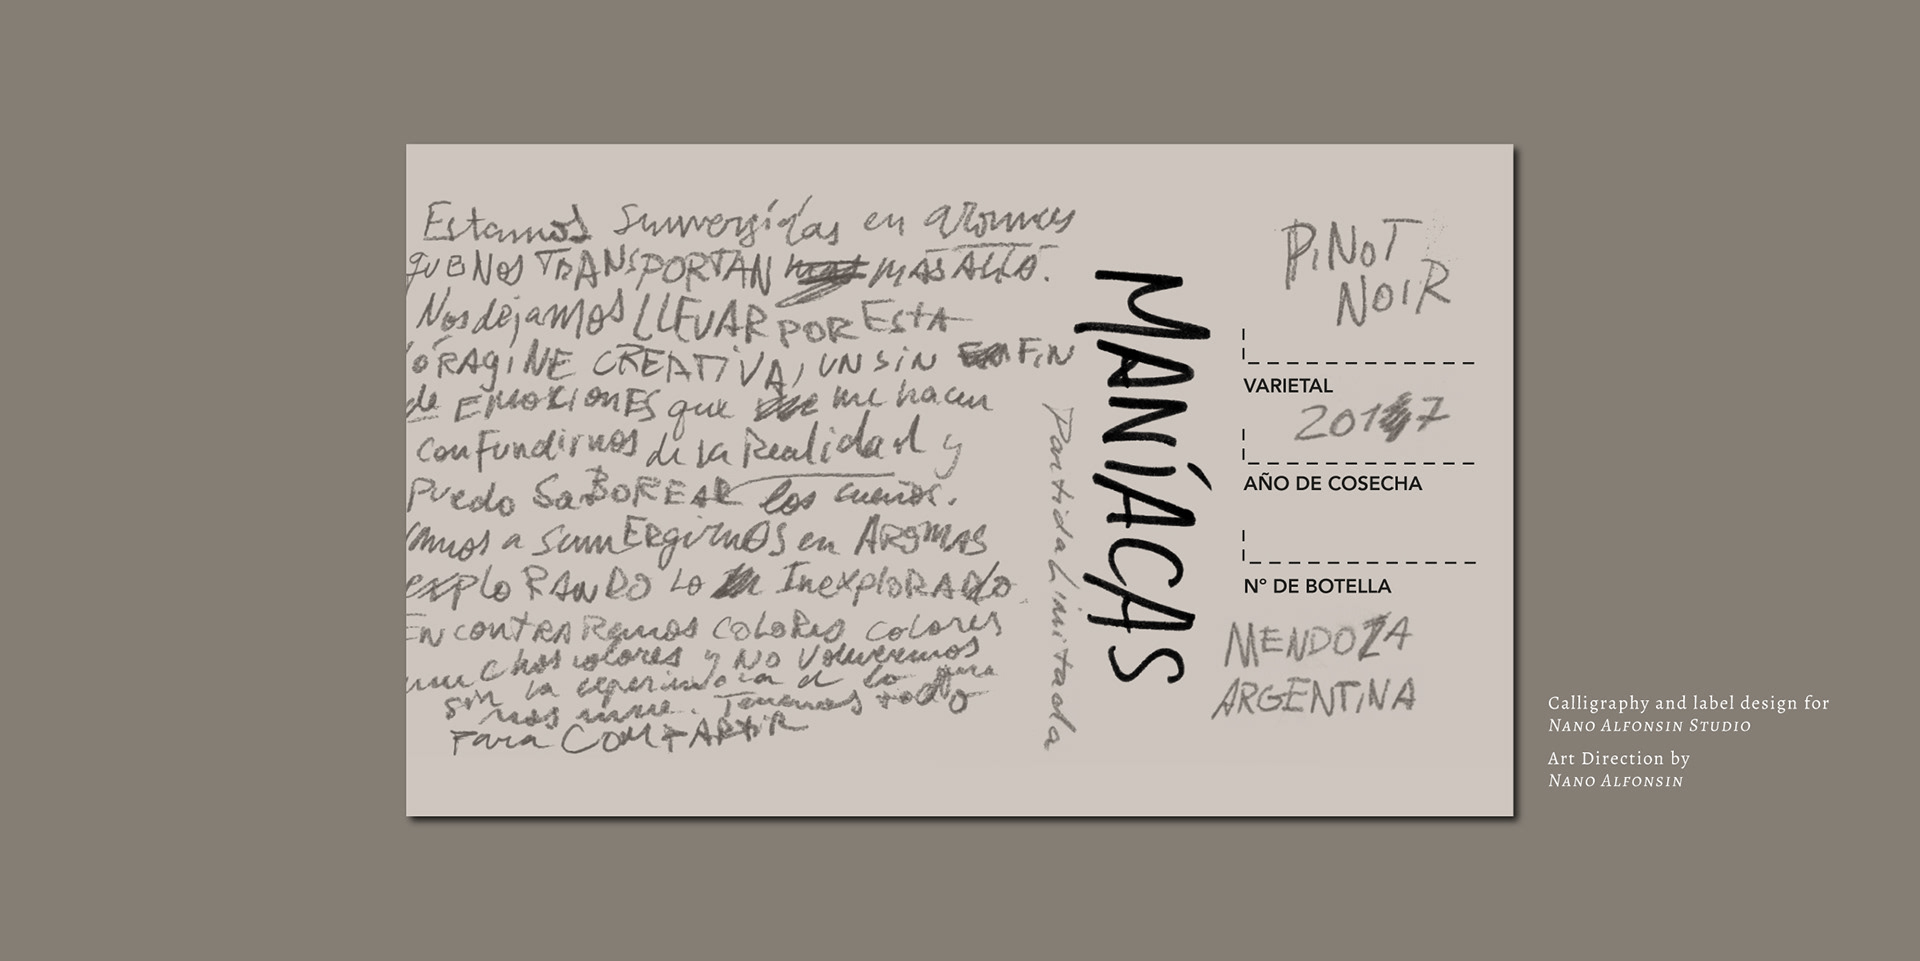 Estamos Sumergidas en aromas
QUE NOS TRANSPORTAN MAS ALLA.
Nos dejamos LLEVAR POR ESTA
ORAGINE CREATIVA, UN SIN FIN
de EMOCIONES que me hacen
confundirnos de la Realidad y
Puedo SaBOREAR los sueños.
amos a sumERgirnOS en AROMAS
exploRANDO LO InexplORADO
EN CONTRARemos COLORES colores
muchos colores y NO Volveremos
sin la experiencia de lo que
nos une. Tenemos todo
Para COMPARTIR
Partida Limitada
MANÍACAS
PINOT
NOIR
VARIETAL
2017
AÑO DE COSECHA
Nº DE BOTELLA
MENDOZA
ARGENTINA
Calligraphy and label design for
NANO ALFONSIN STUDIO
Art Direction by
NANO ALFONSIN